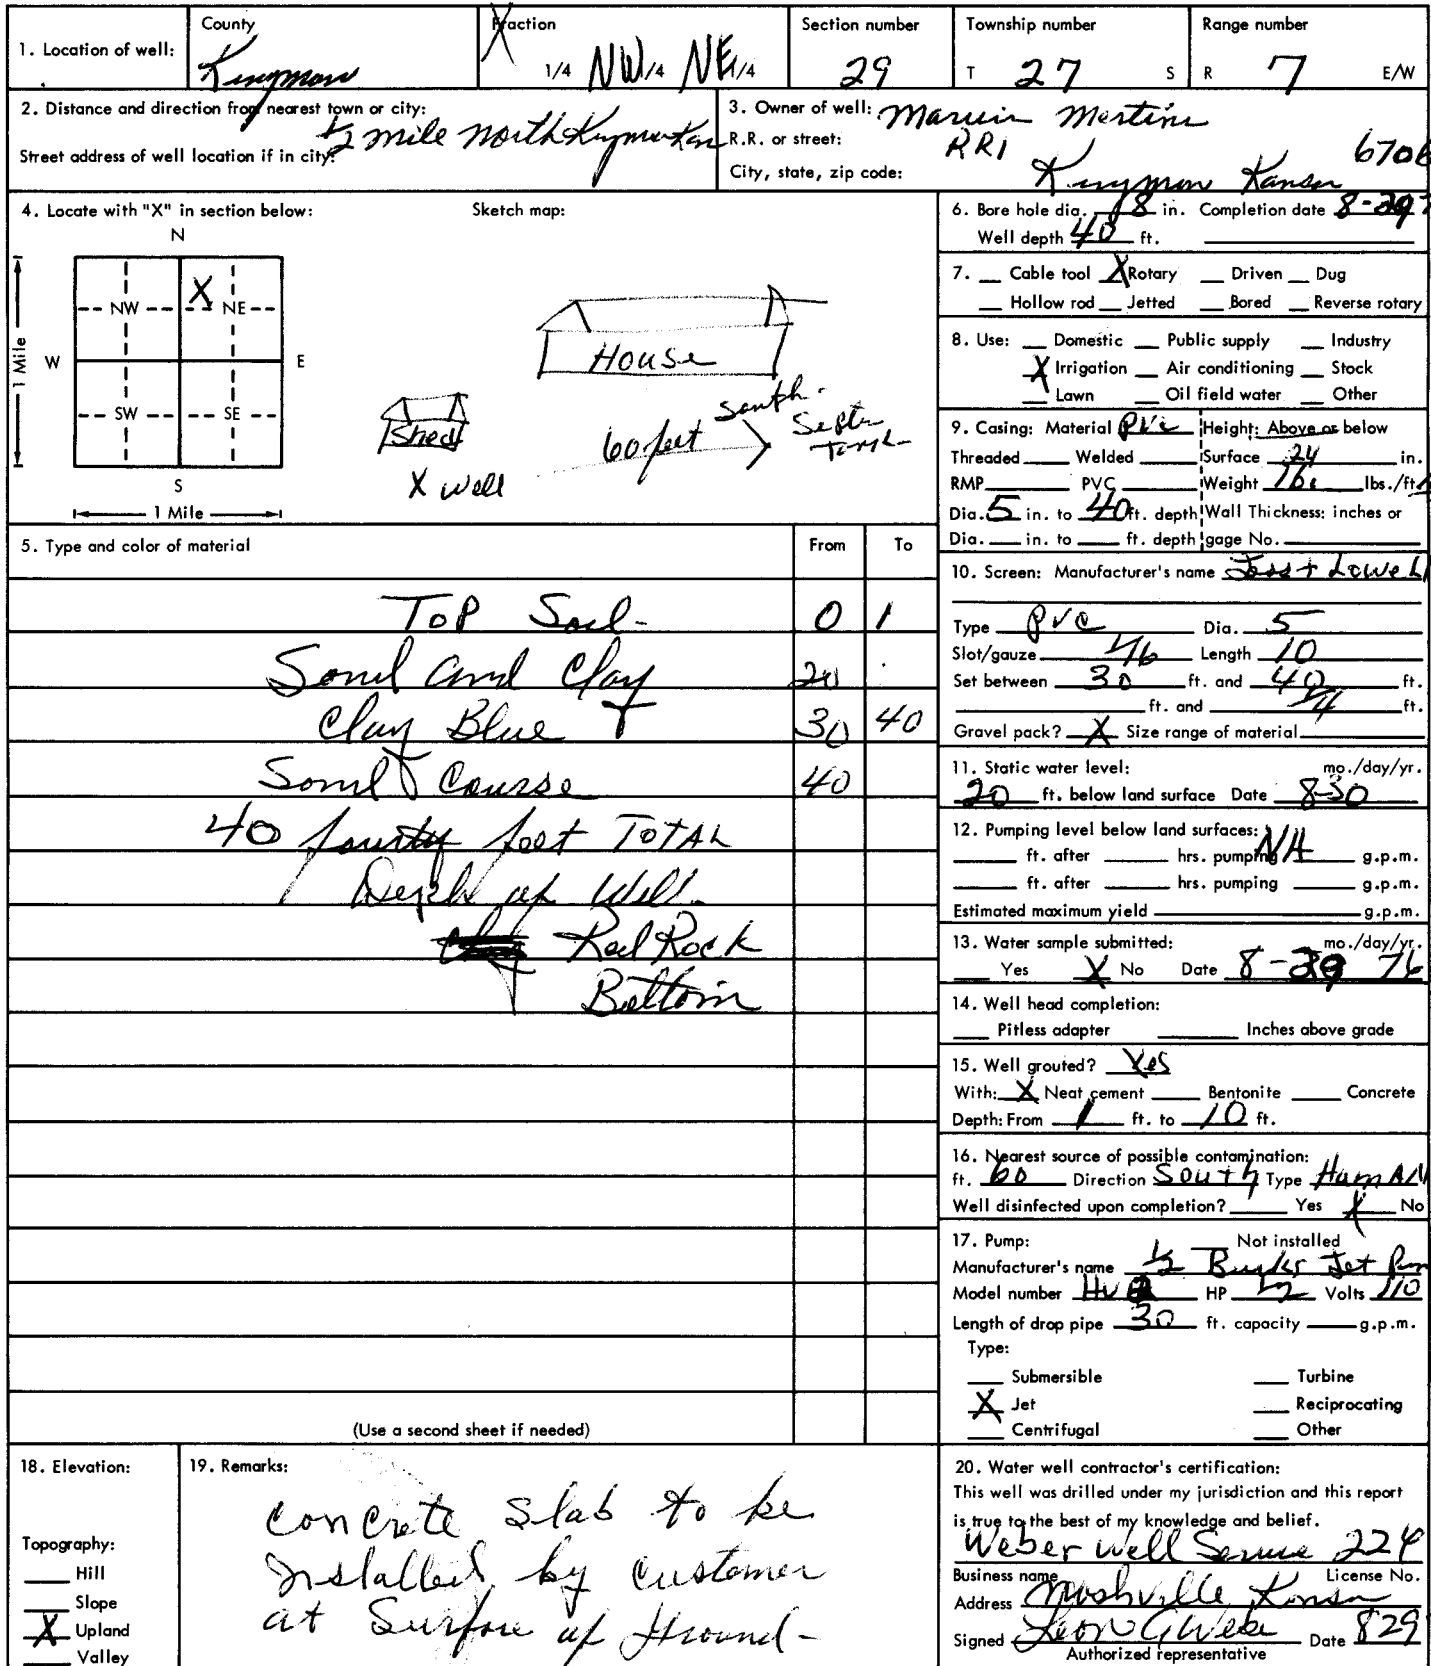 County
Fraction
Section number
Township number
Range number
1. Location of well:
Kingman
X
1/4 NW 1/4 NE 1/4
29
T 27 S
R 7 E/W
2. Distance and direction from nearest town or city:
1/2 mile north Kingman Kan
Street address of well location if in city:
3. Owner of well: Marvin Martin
R.R. or street: RR1
City, state, zip code: Kingman Kansas 6706
4. Locate with "X" in section below:
Sketch map:
N
NW X NE
W E
1 Mile
SW SE
S
1 Mile
House
Shed
X well
60 feet
south
Septic
Tank
5. Type and color of material From To
Top Soil- 0 1
Sand and Clay 20
Clay Blue 30 40
Sand Course 40
40 fourty feet TOTAL
Depth of Well.
Red Rock
Bottom
(Use a second sheet if needed)
6. Bore hole dia. 8 in. Completion date 8-29 7
Well depth 40 ft.
7. Cable tool X Rotary Driven Dug
Hollow rod Jetted Bored Reverse rotary
8. Use: Domestic Public supply Industry
X Irrigation Air conditioning Stock
Lawn Oil field water Other
9. Casing: Material PVC Height: Above or below
Threaded Welded Surface 24 in.
RMP PVC Weight 160 lbs./ft.
Dia. 5 in. to 40 ft. depth Wall Thickness: inches or
Dia. in. to ft. depth gage No.
10. Screen: Manufacturer's name Jess + Lowell
Type PVC Dia. 5
Slot/gauze 1/16 Length 10
Set between 30 ft. and 40 ft.
ft. and 1/4 ft.
Gravel pack? X Size range of material
11. Static water level: mo./day/yr.
20 ft. below land surface Date 8-30
12. Pumping level below land surfaces:
ft. after hrs. pumping NA g.p.m.
ft. after hrs. pumping g.p.m.
Estimated maximum yield g.p.m.
13. Water sample submitted: mo./day/yr.
Yes X No Date 8-29 76
14. Well head completion:
Pitless adapter Inches above grade
15. Well grouted? Yes
With: X Neat cement Bentonite Concrete
Depth: From 1 ft. to 10 ft.
16. Nearest source of possible contamination:
ft. 60 Direction South Type HumAN
Well disinfected upon completion? Yes X No
17. Pump: Not installed
Manufacturer's name 1/2 Burks Jet Pum
Model number HP 1/2 Volts 110
Length of drop pipe 30 ft. capacity g.p.m.
Type:
Submersible Turbine
X Jet Reciprocating
Centrifugal Other
18. Elevation:
Topography:
Hill
Slope
X Upland
Valley
19. Remarks:
concrete slab to be
installed by customer
at Surface of Ground-
20. Water well contractor's certification:
This well was drilled under my jurisdiction and this report
is true to the best of my knowledge and belief.
Weber Well Service 224
Business name License No.
Address Nashville Kansas
Signed Leon G Weber Date 829
Authorized representative